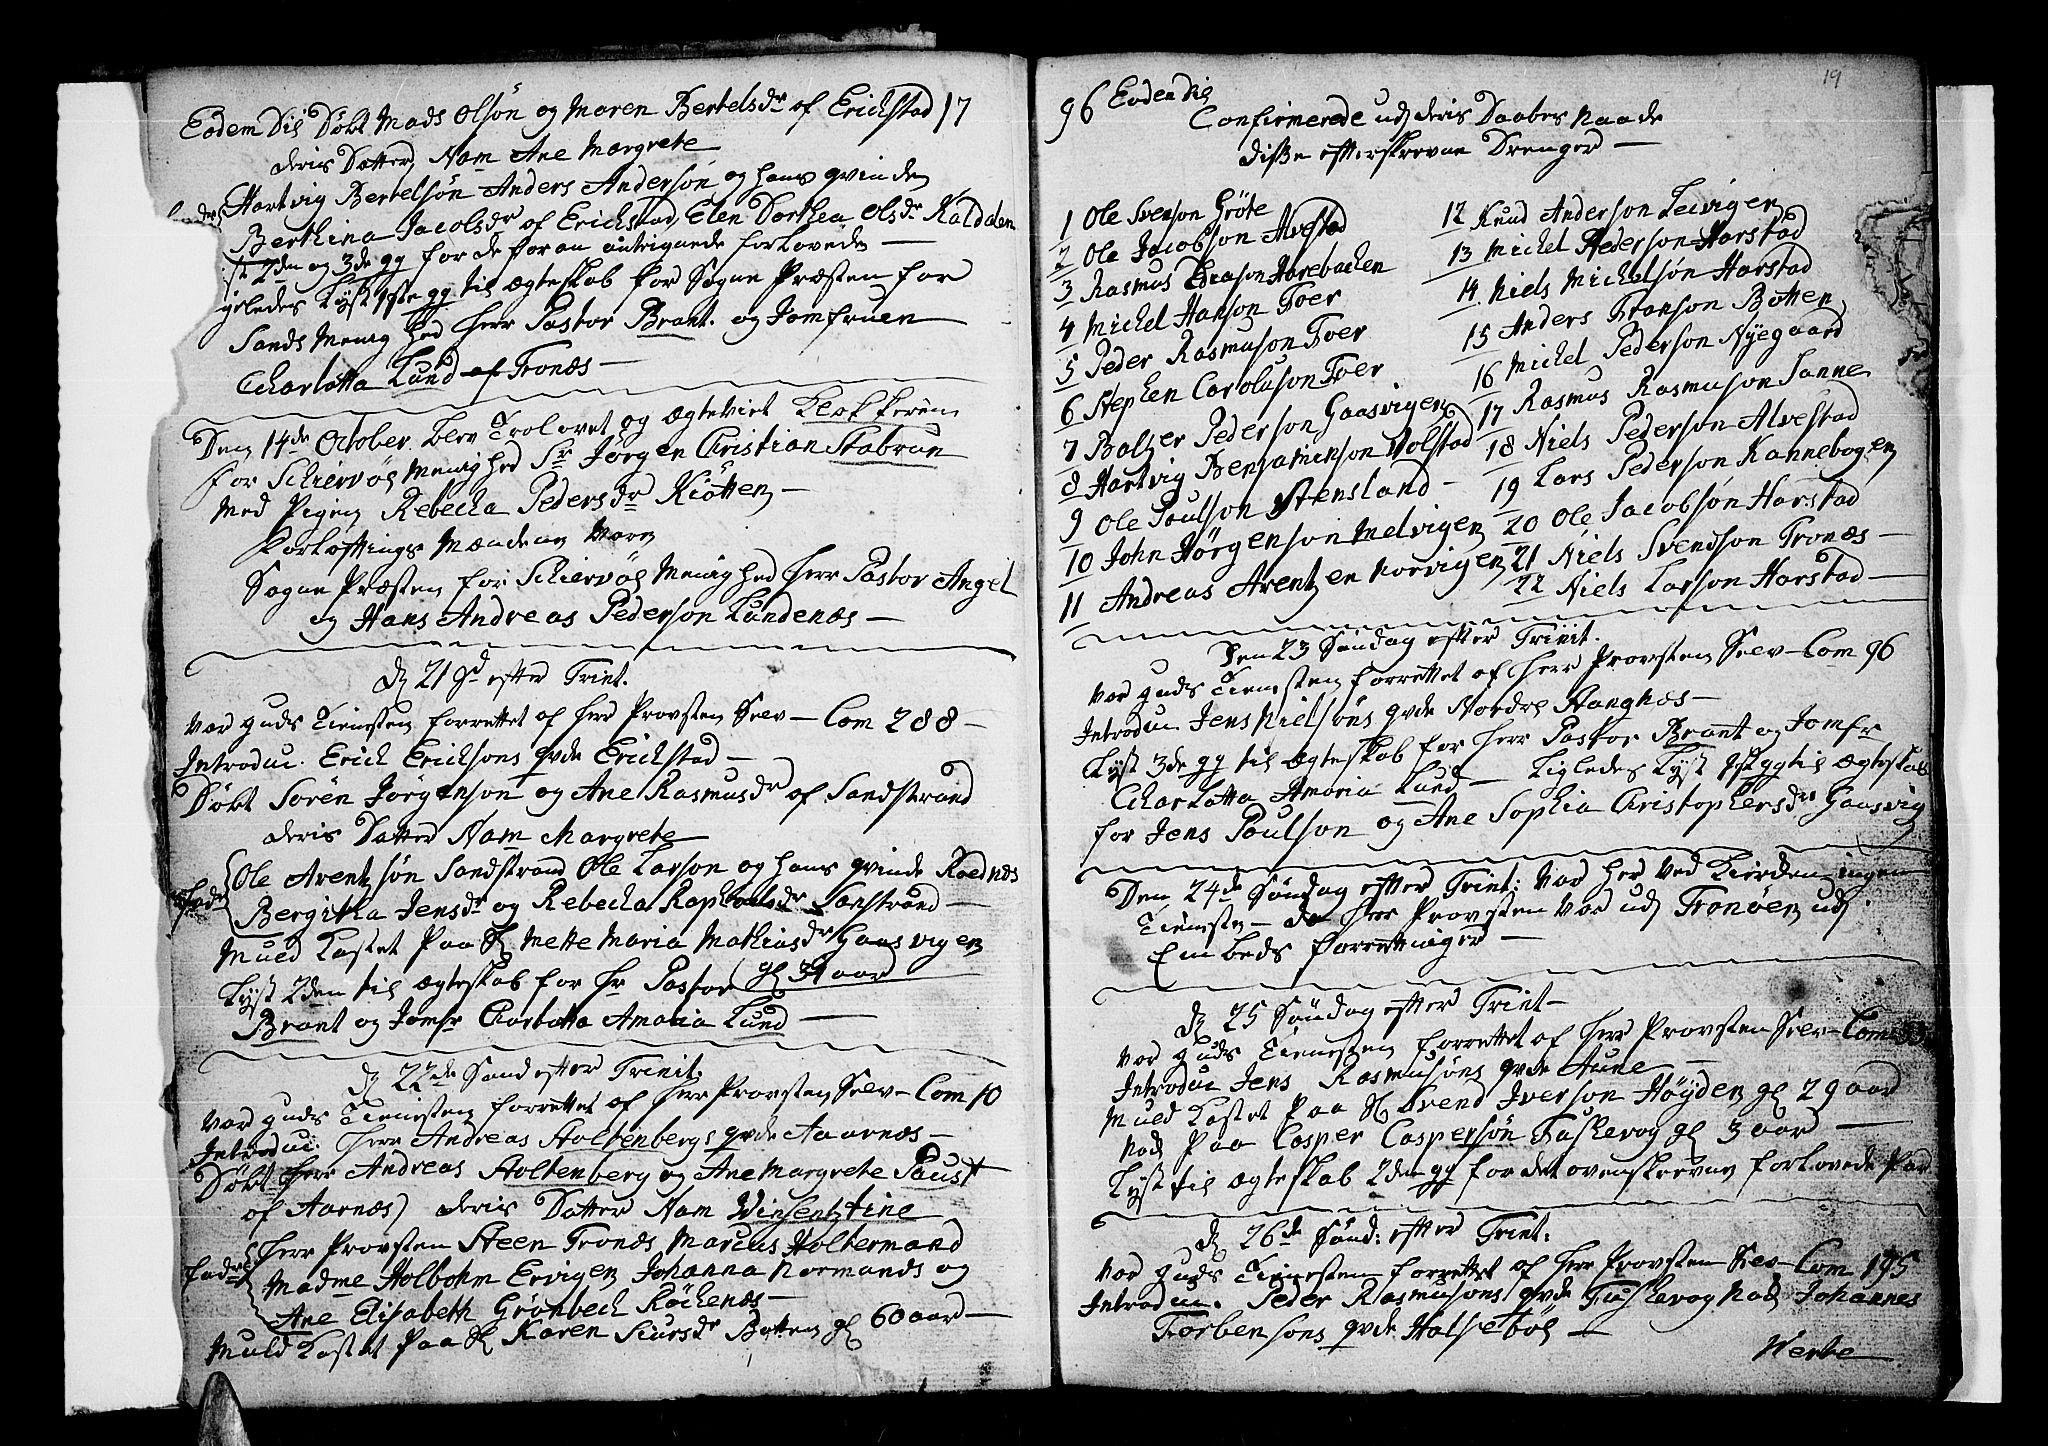 Eodem Die Døbt Mads Olsøn og Maren Bertelsdr af Erichstad 17
deris Datter Nam Ane Margrete
Hartvig Bertelsøn Anders Andersøn og hans qvinden
Berthina Jacobsdr of Erichstad, Elen Dorthea Olsdr Kalddalen
2den og 3de gg for de foran antegnede forlovede —
Lyst 1ste gg til Ægteskab for Sogne Præsten for
Sands Menighed Herr Pastor Brant. og Jomfruen
Charlotta Lund af Tronæs —
Den 14de October blev Troelovet og Ægteviet Klokkeren
for Schiervøe Menighed Sr Jørgen Christian Stabrun
Med Pigen Rebecha Pedersdr Kiøtten —
Forlovnings Mændene Vare
Sogne Præsten for Schiervøe Menighed Herr Pastor Angel
og Hans Andreas Pederson Lundenæs —
D 21 Sd efter Trint.
Var Guds Tienesten forrettet af Herr Provsten Selv — Com 288 —
Introduc. Erich Ericksons qvde Erickstad —
Døbt Sørën Jørgenson og Ane Rasmusdr of Sandstrand
deris Datter Nam Margrete
Fadr Ole Arentzsøn Sandstrand Ole Larson og hans qvinde Roednæs
Bergitha Jensdr og Rebecha Raphaelsdr Sanstrand —
Muld Kastet Paa Sl Mette Maria Mathiasdr Gaasvigen
gl 34 aar
Lyst 2den til Ægteskab for Hr Pastor
Brant og Jomfr Charlotta Amaria Lund —
D 22de Sønd efter Trinit.
Var Guds Tienesten forrettet af Herr Provsten Selv — Com 10
Introduc: Herr Andreas Stoltenbergs qvde Aaarnæs —
Døbt Herr Andreas Stoltenberg og Ane Margrete Paust
of Aarnæs) deris Datter Nam Winsentztine
Fadre Herr Provsten Steen Tronæs Marcus Holtermand
Madme Holbohm Ervigen Johanna Normands og
Ane Elisabeth Grønbech Røckenæs —
Muld Kastet Paa Sl Karen Siursdr Botten gl 60 aar —
19
96 Eodem Die
Confirmerede udj deris Daabes Naade
diße efterskrevne Drenger —
1 Ole Svenson Grøte
2 Ole Jacobson Alvestad
3 Rasmus Harebachen
4 Michel Hanson Foer
5 Peder Rasmuson Foer
6 Stephen Caroluson Foer
7 Baltzer Pederson Gaasvigen
8 Hartvig Benjaminson Volstad
9 Ole Poulson Stensland —
10 John Hörgenson Melvigen
11 Andreas Arentzen Norvigen
12 Knud Anderson Leivigen
13 Michel Pederson Harstad
14 Niels Michelsøn Harstad
15 Anders Franson Botten
16 Michel Pederson Nyegaard
17 Rasmus Rasmuson Sanne
18 Niels Pederson Alvestad
19 Lars Pederson Kannebogen
20 Ole Jacobsøn Harstad
21 Niels Svendson Tronæs —
22 Niels Larson Harstad —
Den 23 Søndag efter Trinit.
Var Guds Tienesten forrettet af Herr Provsten Selv — Com 96
Introduc Jens Nielsøns qvde Nordre Stanghæs —
Lyst 3de gg til Ægteskab for Herr Pastor Brant og Jomfr
Charlotta Amaria Lund — Ligledes Lyst 1st gg til Ægteskab
for Jens Poulson og Ane Sophia Christophersdr Gaasvig
Den 24de Søndag efter Trint: Var her Ved Kierken ingen
Tienesten — da Herr Provsten Var udj Tronøen udj
Embeds forretninger —
D 25 Søndag efter Trint —
Var Guds Tienesten forrettet af Herr Provsten Selv — Com
Introduc Jens Rasmusøns qvde Aune —
Muld Kastet Paa Sl Svend Iverson Høyden gl 29 aar
Nok Paa Casper Caspersøn Fuskevog gl 3 aar —
Lyst til Ægteskab 2den gg for det ovenskrevne forlovede Par
D 26de Sønd: efter Trint:
Var Guds Tienesten forrettet af Herr Provsten Selv — Com 195
Introduc. Peder Rasmusøns qvde Fuskevog Nok Johannes
Torbensons qvde Halsebøe —
Verte